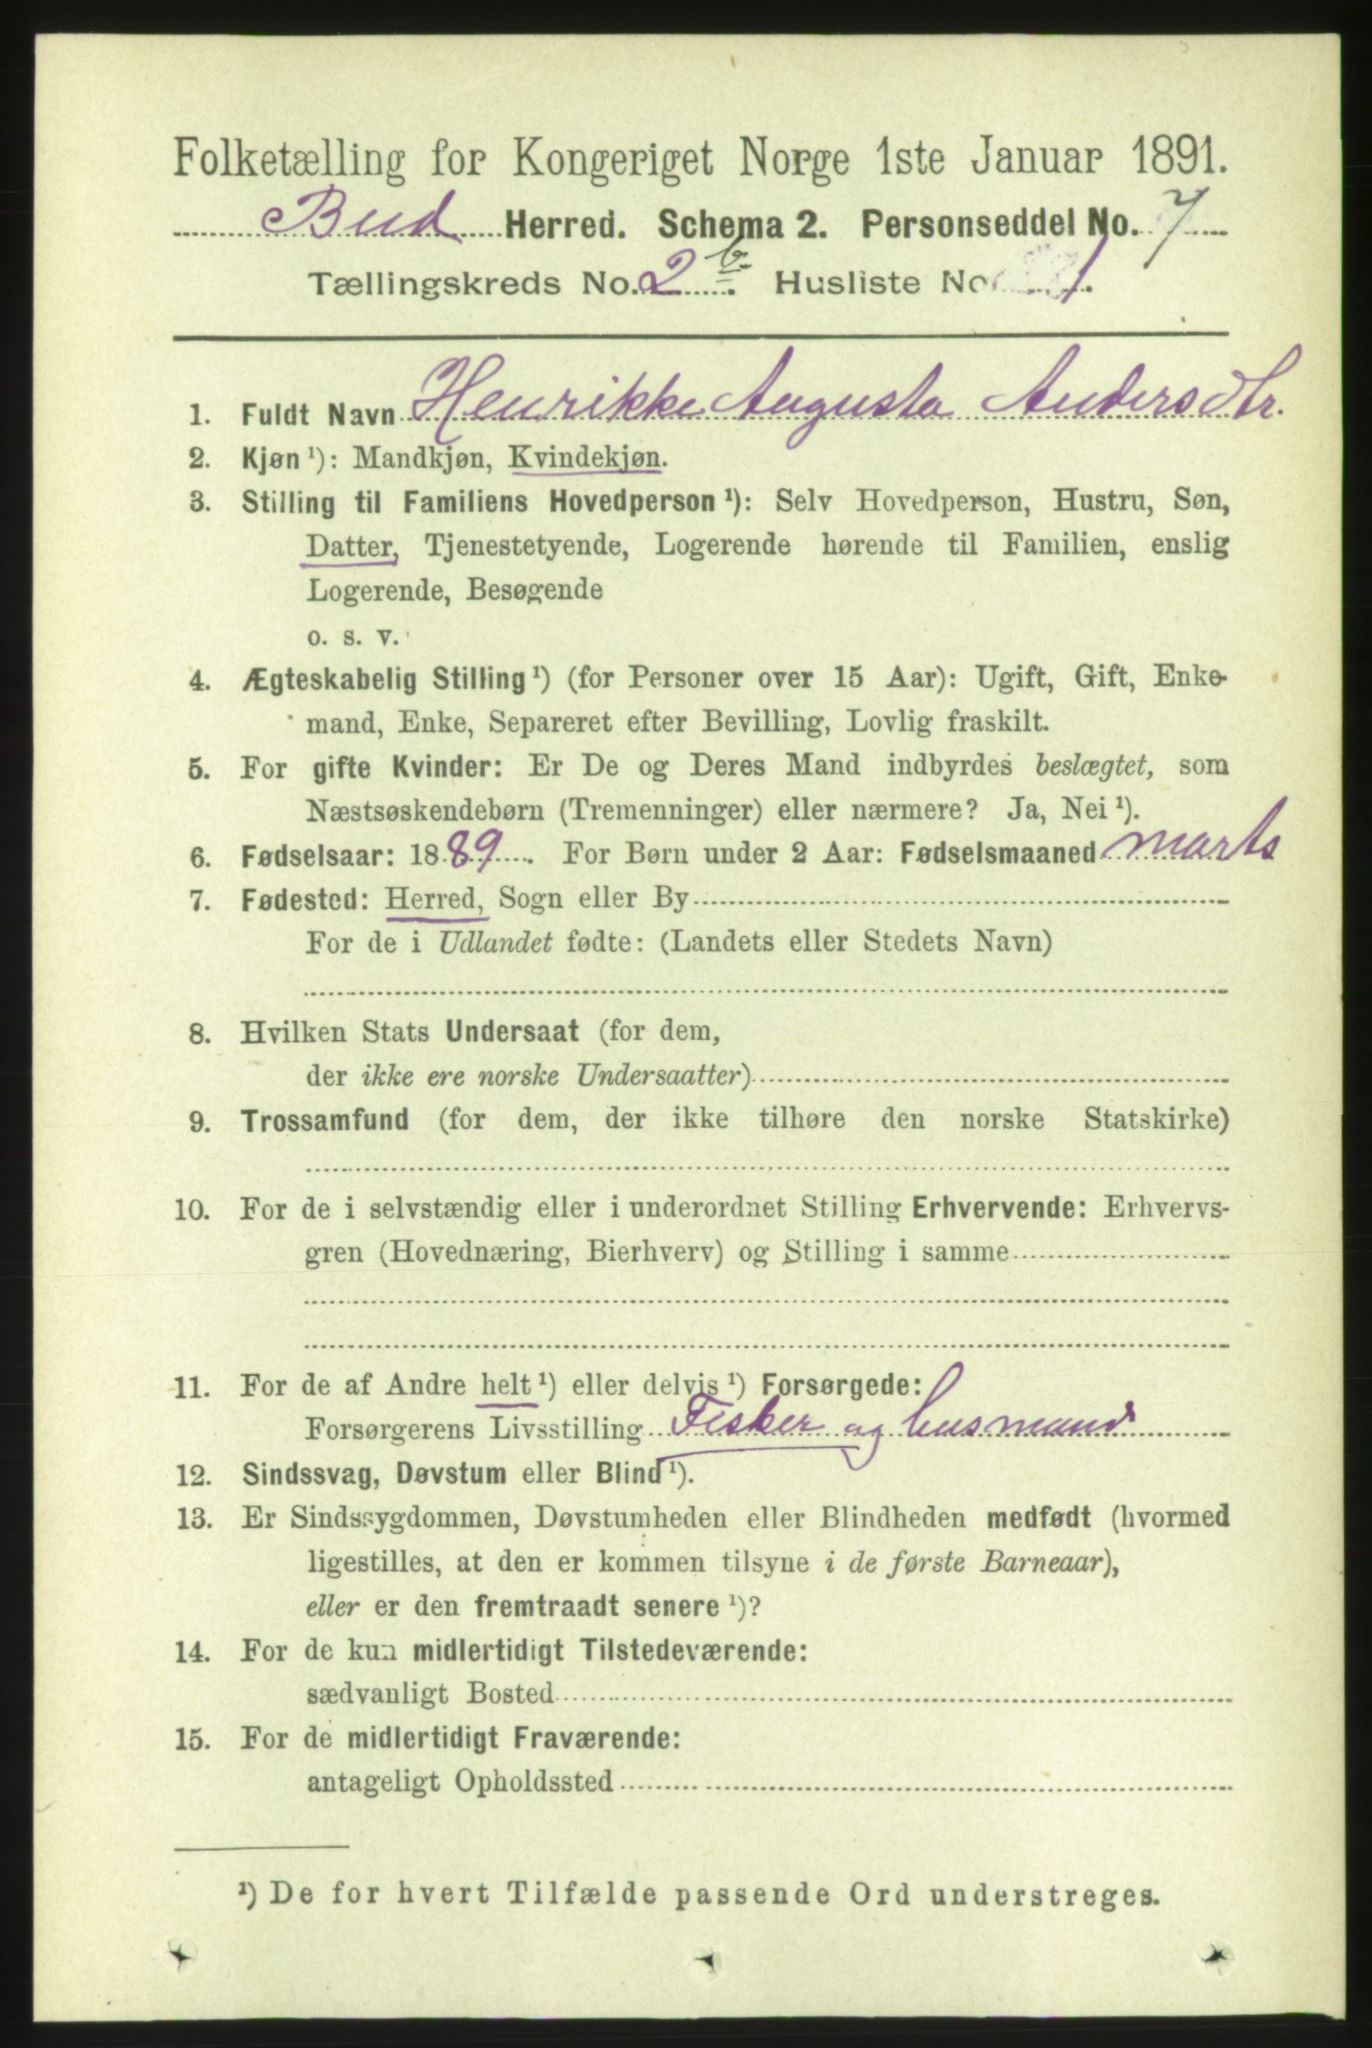 Folketælling for Kongeriget Norge 1ste Januar 1891.
Bud Herred. Schema 2. Personseddel No. 7
Tællingskreds No. 2 b. Husliste No
1. Fuldt Navn Henrikke Augusta Andersdtr.
2. Kjøn ¹): Mandkjøn, Kvindekjøn.
3. Stilling til Familiens Hovedperson ¹): Selv Hovedperson, Hustru, Søn,
Datter, Tjenestetyende, Logerende hørende til Familien, enslig
Logerende, Besøgende
o. s. v.
4. Ægteskabelig Stilling ¹) (for Personer over 15 Aar): Ugift, Gift, Enke-
mand, Enke, Separeret efter Bevilling, Lovlig fraskilt.
5. For gifte Kvinder: Er De og Deres Mand indbyrdes beslægtet, som
Næstsøskendebørn (Tremenninger) eller nærmere? Ja, Nei ¹).
6. Fødselsaar: 1889. For Børn under 2 Aar: Fødselsmaaned marts
7. Fødested: Herred, Sogn eller By
For de i Udlandet fødte: (Landets eller Stedets Navn)
8. Hvilken Stats Undersaat (for dem,
der ikke ere norske Undersaatter)
9. Trossamfund (for dem, der ikke tilhøre den norske Statskirke)
10. For de i selvstændig eller i underordnet Stilling Erhvervende: Erhvervs-
gren (Hovednæring, Bierhverv) og Stilling i samme
11. For de af Andre helt ¹) eller delvis ¹) Forsørgede:
Forsørgerens Livsstilling Fisker og husmand
12. Sindssvag, Døvstum eller Blind ¹).
13. Er Sindssygdommen, Døvstumheden eller Blindheden medfødt (hvormed
ligestilles, at den er kommen tilsyne i de første Barneaar),
eller er den fremtraadt senere ¹)?
14. For de kun midlertidigt Tilstedeværende:
sædvanligt Bosted
15. For de midlertidigt Fraværende:
antageligt Opholdssted
¹) De for hvert Tilfælde passende Ord understreges.